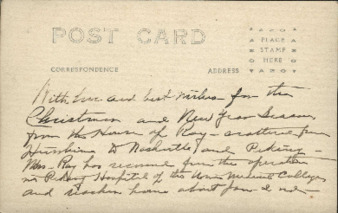 POST CARD
PLACE
STAMP
HERE
CORRESPONDENCE ADDRESS
With love and best wishes for the
Christmas and New Year Season
from the House of Ray - scattered from
Hiroshima to Nashville and Peking -
Mrs. Ray has recovered from the operation
in Hospital of the Union Medical College
and home about